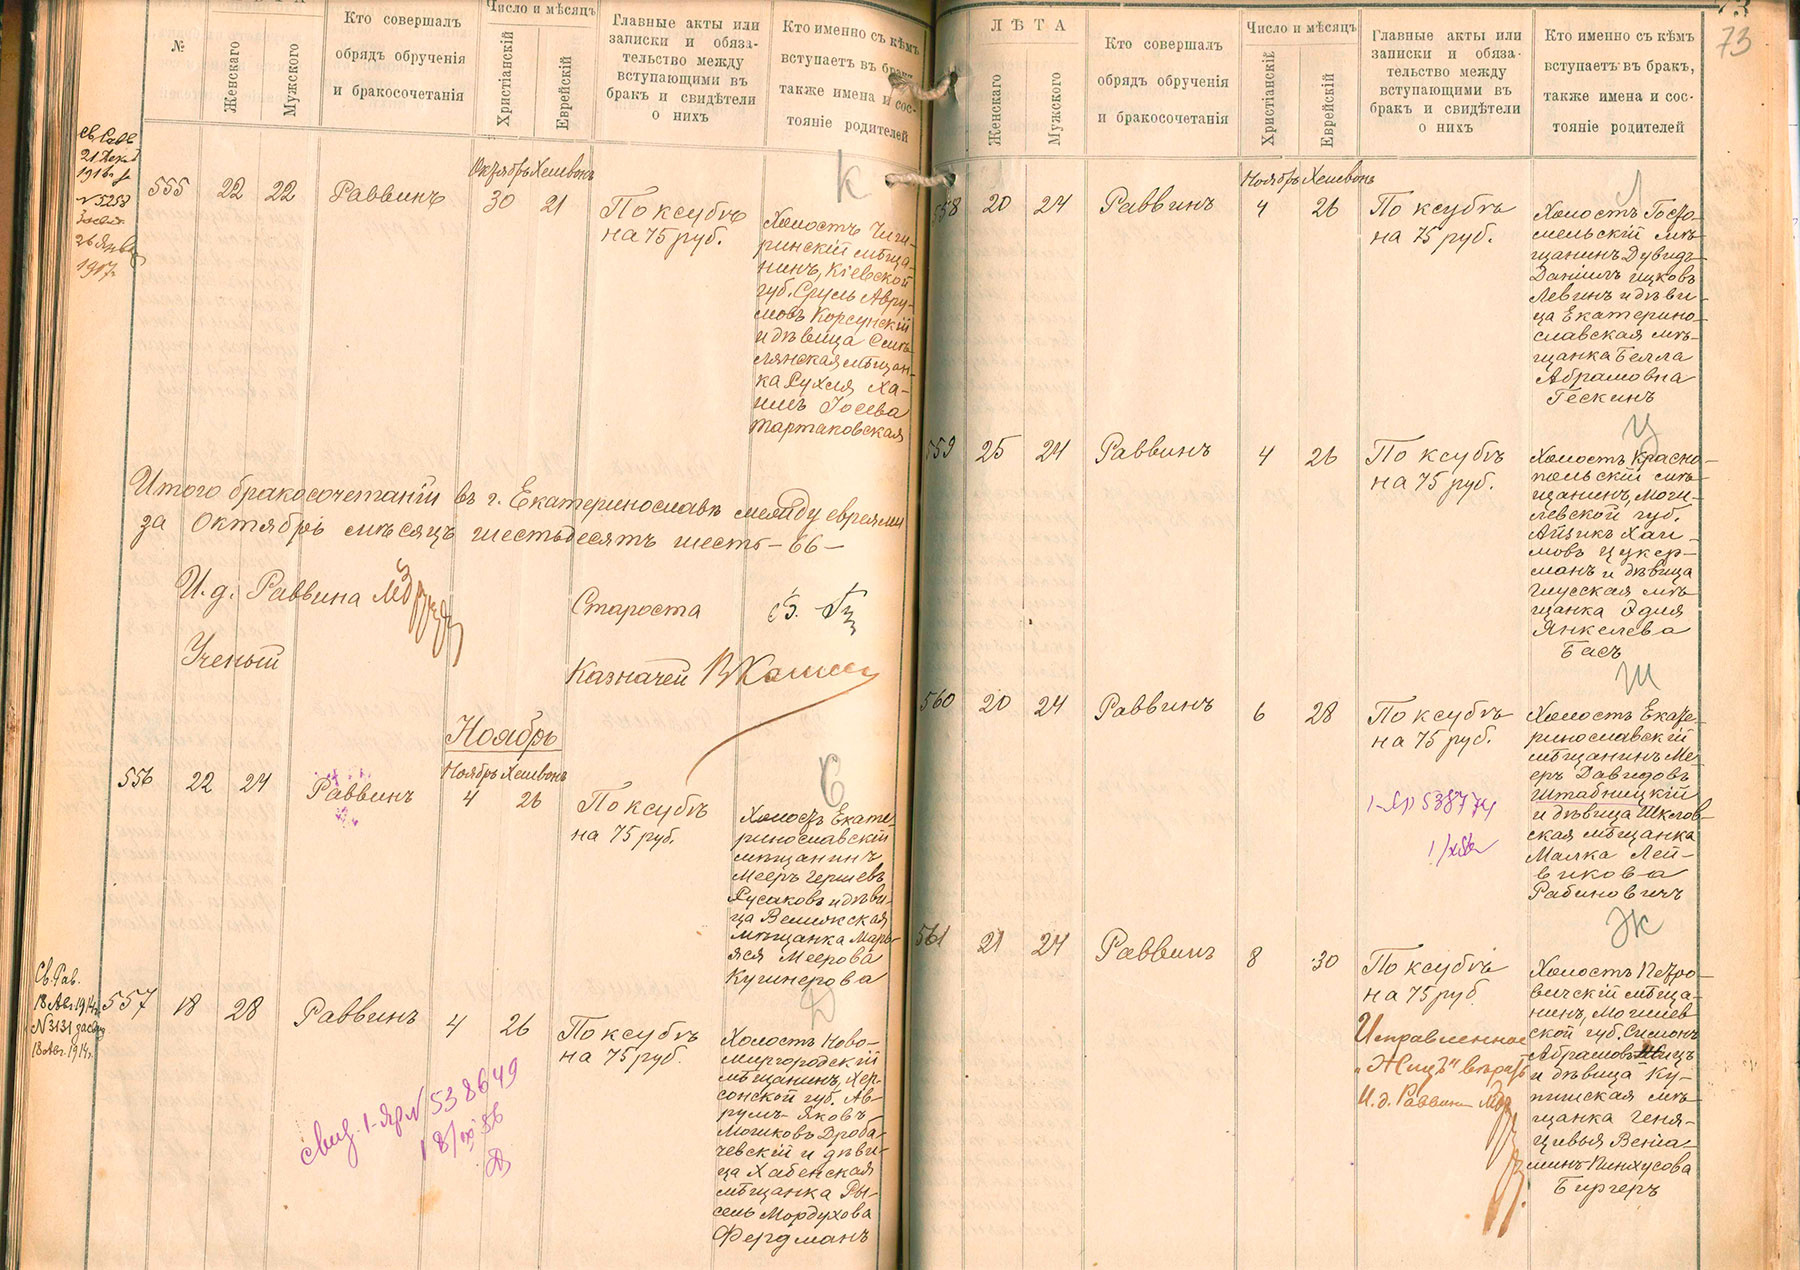 №
ЛѢТА
Женскаго
Мужского
Кто совершалъ
обрядъ обрученія
и бракосочетанія
Число и мѣсяцъ
Христіанскій
Еврейскій
Главные акты или
записки и обяза-
тельство между
вступающими въ
бракъ и свидѣтели
о нихъ
Кто именно съ кѣмъ
вступаетъ въ бракъ,
также имена и сос-
тояніе родителей
21 Дек.
1916 г.
№ 5258
26 Янв.
1917
К
Октябрь Хешвонъ
555 22 22 Раввинъ 30 21
По ксубѣ
на 75 руб.
Холостъ Чиги-
ринскій мѣща-
нинъ, Кіевской
губ. Сруль Авру-
мовъ Корсунскій
и дѣвица Смѣ-
лянская мѣщан-
ка Рухля Ха-
имъ Іосева
Тартаковская
Итого бракосочетаній въ г. Екатеринославѣ между евреями
за Октябрь мѣсяцъ шестьдесятъ шесть - 66 -
И. д. Раввина
Староста
Ученый
Казначей
Ноябрь
С
Ноябрь Хешвонъ
556 22 24 Раввинъ 4 26
По ксубѣ
на 75 руб.
Холостъ Екате-
ринославскій
мѣщанинъ
Мееръ Гершевъ
Русаковъ и дѣви-
ца Велижская
мѣщанка Марь-
яся Меерова
Кугинерова
Св. Рав.
18 Авг. 1914 г.
№ 3131
18 Авг. 1914 г.
Д
557 18 28 Раввинъ 4 26
По ксубѣ
на 75 руб.
Холостъ Ново-
миргородскій
мѣщанинъ, Хер-
сонской губ. Ав-
румъ-Яковъ
Мошковъ Дроба-
чевскій и дѣви-
ца Хабенская
мѣщанка Ры-
сель Мордухова
Фердманъ
свид. 1-Яр № 538649
73
ЛѢТА
Женскаго
Мужского
Кто совершалъ
обрядъ обрученія
и бракосочетанія
Число и мѣсяцъ
Христіанскій
Еврейскій
Главные акты или
записки и обяза-
тельство между
вступающими въ
бракъ и свидѣтели
о нихъ
Кто именно съ кѣмъ
вступаетъ въ бракъ,
также имена и сос-
тояніе родителей
Л
Ноябрь Хешвонъ
558 20 24 Раввинъ 4 26
По ксубѣ
на 75 руб.
Холостъ Госто-
мельскій мѣ-
щанинъ Дувидъ-
Даніилъ Ицковъ
Левинъ и дѣви-
ца Екатерино-
славская мѣ-
щанка Белла
Абрамовна
Гескинъ
Ц
559 25 24 Раввинъ 4 26
По ксубѣ
на 75 руб.
Холостъ Красно-
польскій мѣ-
щанинъ, Моги-
левской губ.
Айзикъ Хаи-
мовъ Цукер-
манъ и дѣвица
Глусская мѣ-
щанка Эдля
Янкелева
Басъ
Ш
560 20 24 Раввинъ 6 28
По ксубѣ
на 75 руб.
Холостъ Екате-
ринославскій
мѣщанинъ Ме-
еръ Давидовъ
Штабницкій
и дѣвица Шклов-
ская мѣщанка
Малка Лей-
викова
Рабиновичъ
Ж
561 21 24 Раввинъ 8 30
По ксубѣ
на 75 руб.
Исправленное
"Жицъ" вѣрить
И. д. Раввина
Холостъ Петро-
вичскій мѣща-
нинъ, Могилев-
ской губ. Симонъ
Абрамовъ Жицъ
и дѣвица Ку-
пишская мѣ-
щанка Геня-
Цивья Веніа-
минъ-Пинхусова
Биргеръ